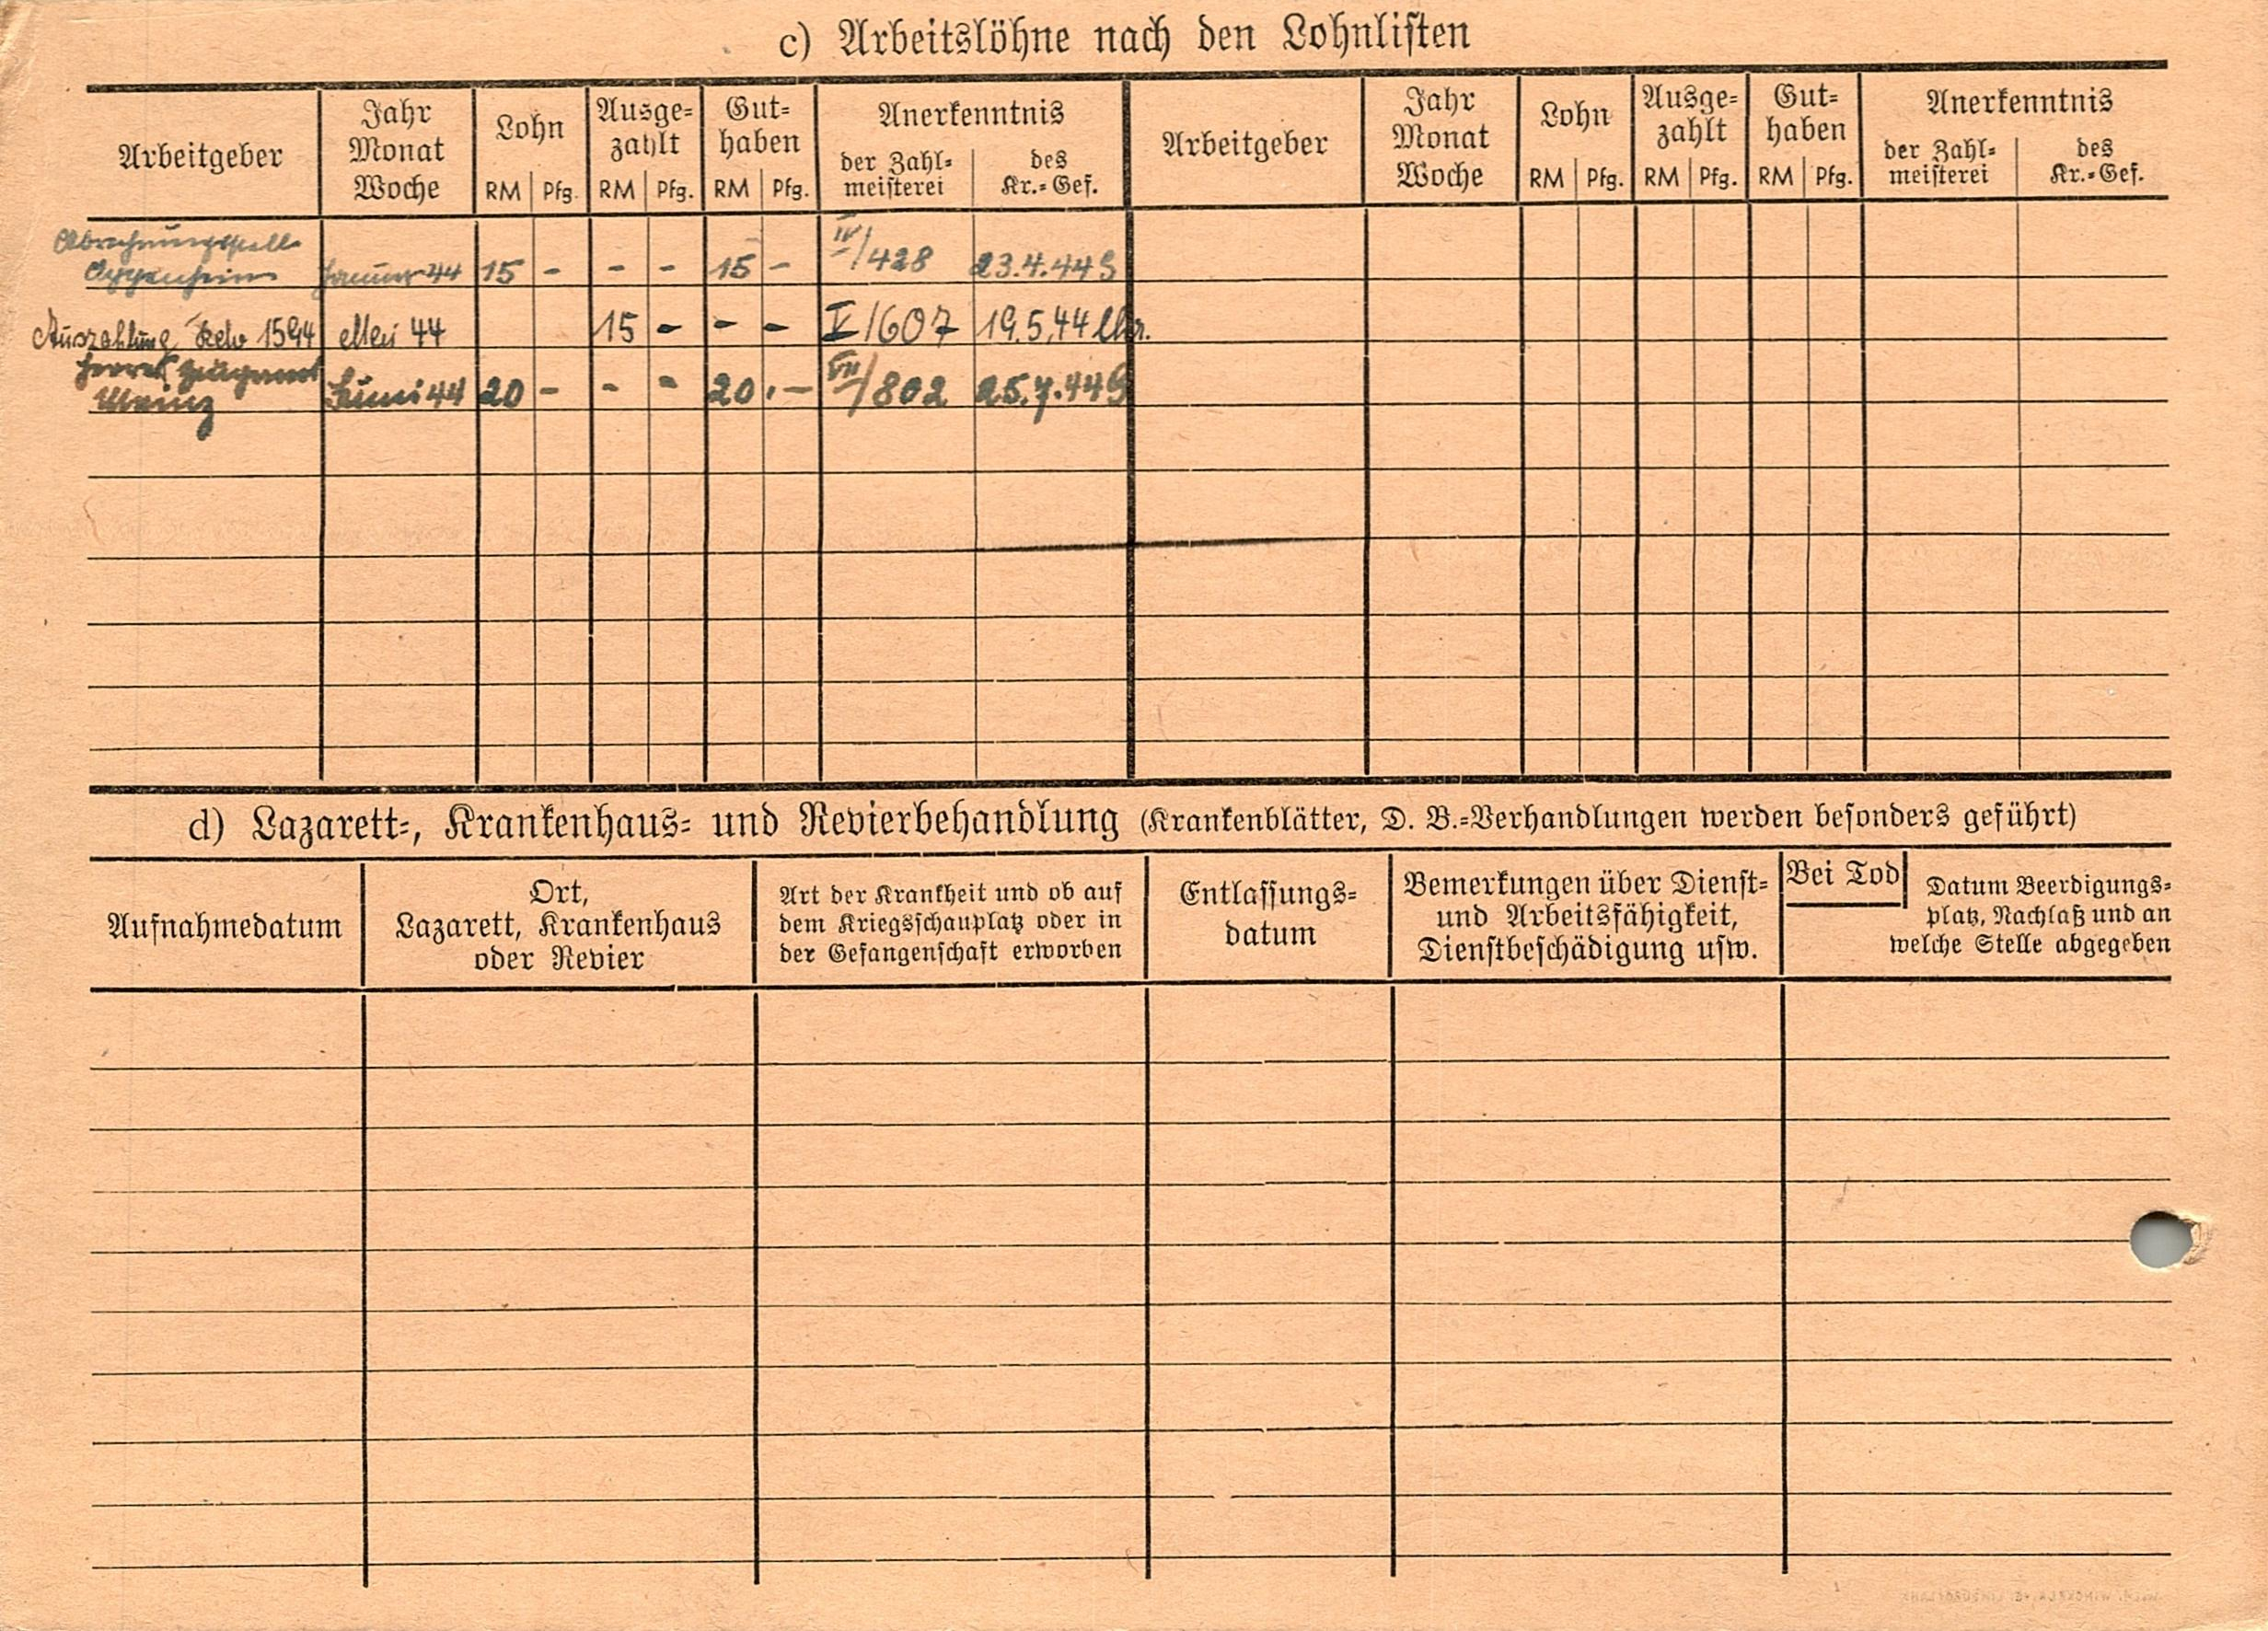 c) Arbeitslöhne nach den Lohnlisten
Arbeitgeber
Jahr
Monat
Woche
Lohn
RM Pfg.
Ausge-
zahlt
RM Pfg.
Gut-
haben
RM Pfg.
Anerkenntnis
der Zahl-
meisterei
des
Kr.-Gef.
Arbeitgeber
Jahr
Monat
Woche
Lohn
RM Pfg.
Ausge-
zahlt
RM Pfg.
Gut-
haben
RM Pfg.
Anerkenntnis
der Zahl-
meisterei
des
Kr.-Gef.
Abrechnungsstelle
Oppenheim Januar 44 15 - - - 15 - IV/428 23.4.44 S
Auszahlung 1594 Mai 44 15 - - - V/607 19.5.44
Heeres Zeugamt
Mainz Juni 44 20 - - - 20.- VII/802 25.7.44 S
d) Lazarett-, Krankenhaus- und Revierbehandlung (Krankenblätter, D. B.-Verhandlungen werden besonders geführt)
Aufnahmedatum
Ort,
Lazarett, Krankenhaus
oder Revier
Art der Krankheit und ob auf
dem Kriegsschauplatz oder in
der Gefangenschaft erworben
Entlassungs-
datum
Bemerkungen über Dienst-
und Arbeitsfähigkeit,
Dienstbeschädigung usw.
Bei Tod
Datum Beerdigungs-
platz, Nachlaß und an
welche Stelle abgegeben